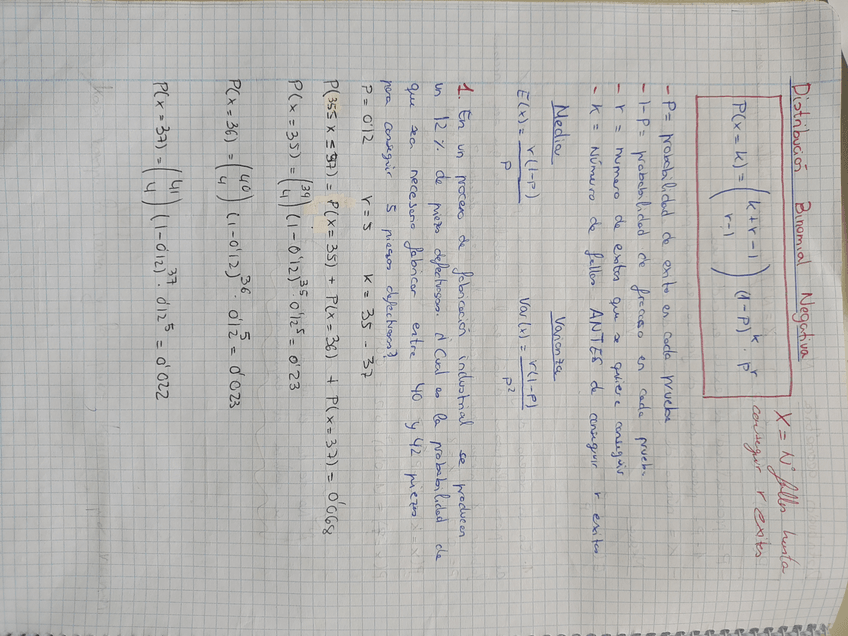 Distribución Binomial Negativa
P(x = k) = (k + r - 1 / r - 1) (1 - p)^k · p^r
X = Nº fallos hasta
conseguir r exitos
- P = probabilidad de exito en cada prueba
- 1-P = probabilidad de fracaso en cada prueba
- r = número de exitos que se quiere conseguir
- k = Número de fallos ANTES de conseguir r exitos
Media
Varianza
E(x) = r(1-p) / p
Var(x) = r(1-p) / p²
1. En un proceso de fabricación industrial se producen
un 12 % de piezas defectuosas. ¿Cuál es la probabilidad de
que sea necesario fabricar entre 40 y 42 piezas
para conseguir 5 piezas defectuosas?
P = 0'12 r = 5 k = 35 - 37
P(35≤ x ≤ 37) = P(x = 35) + P(x = 36) + P(x = 37) = 0'068
P(x = 35) = (39 / 4) (1 - 0'12)^35 · 0'12^5 = 0'23
P(x = 36) = (40 / 4) (1 - 0'12)^36 · 0'12^5 = 0'023
P(x = 37) = (41 / 4) (1 - 0'12)^37 · 0'12^5 = 0'022